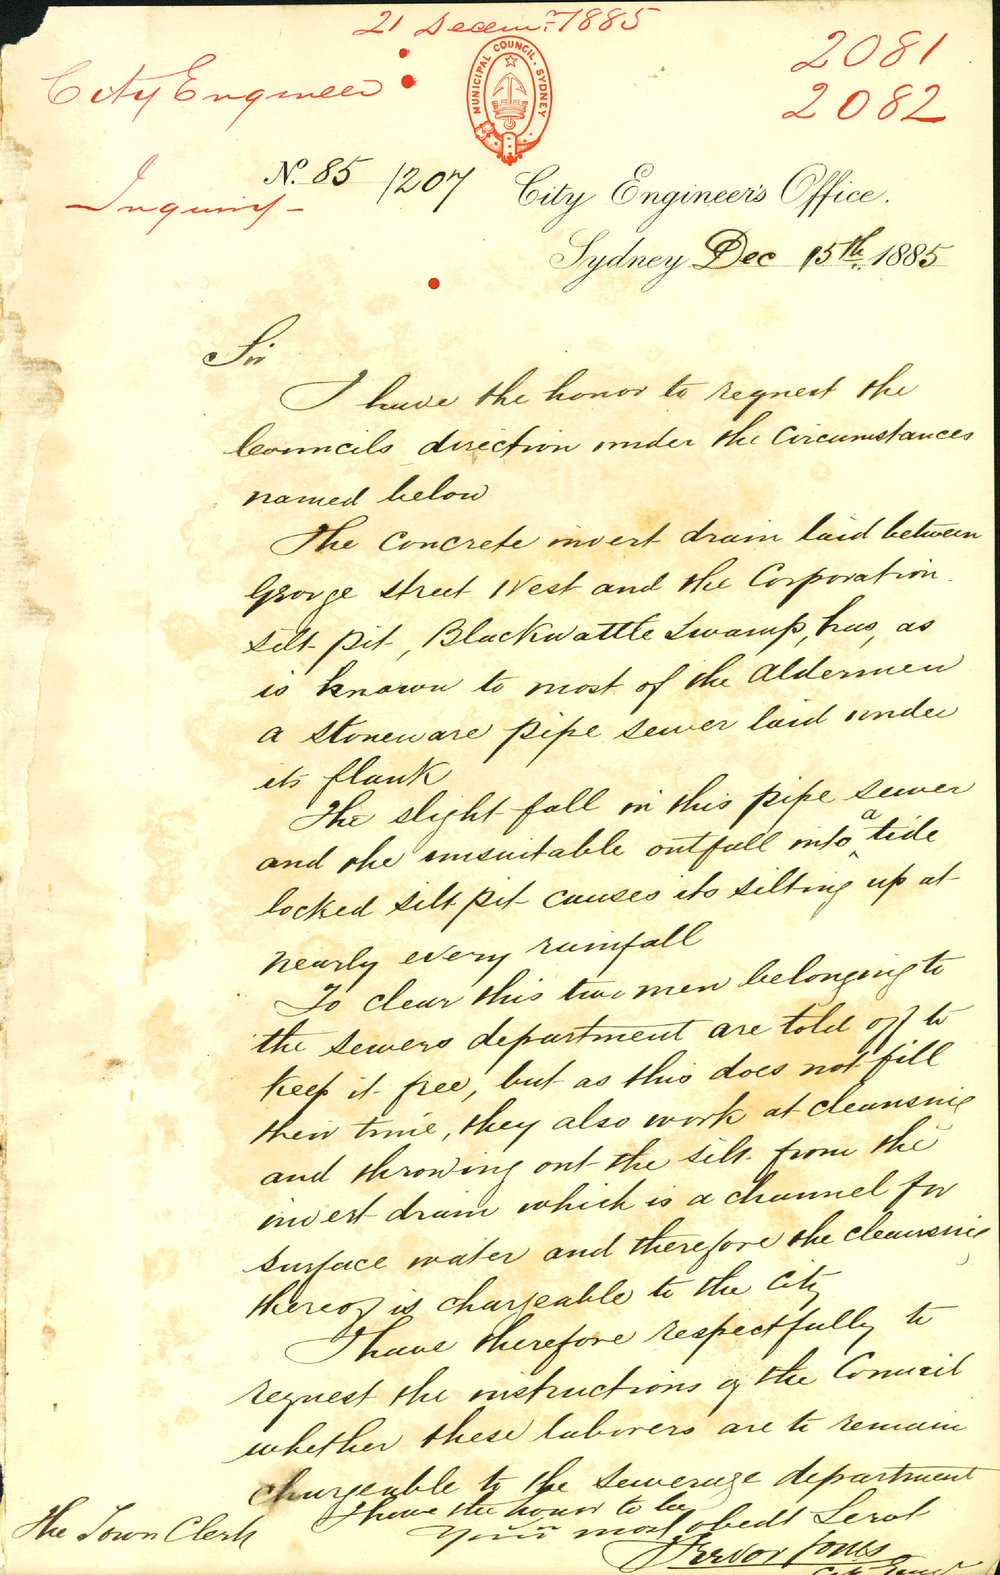 21 Decemr 1885
2081
2082
City Engineer
MUNICIPAL COUNCIL. SYDNEY
Inquiry -
No. 85/207 City Engineer's Office.
Sydney Dec 15th 1885
Sir
I have the honor to request the
Councils direction under the circumstances
named below
The concrete invert drain laid between
George street West and the Corporation
silt pit, Blackwattle Swamp, has, as
is known to most of the Aldermen
a stoneware pipe sewer laid under
its flank
The slight fall in this pipe sewer
and the unsuitable outfall into a tide
locked silt pit causes its silting up at
nearly every rainfall
To clear this two men belonging to
the sewers department are told off to
keep it free, but as this does not fill
their time, they also work at cleansing
and throwing out the silt from the
invert drain which is a channel for
surface water and therefore the cleansing
thereof is chargeable to the City
I have therefore respectfully to
request the instructions of the Council
whether these laborers are to remain
chargeable to the sewerage department
I have the honor to be
Your most obedt Servt
Trevor Jones
City Engr
The Town Clerk